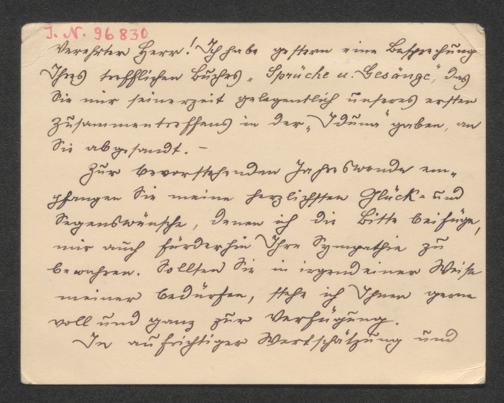 J. N. 96830
Verehrter Herr! Ich habe gestern eine Besprechung
Ihres trefflichen Buches „Sprüche u. Gesänge", das
Sie mir seinerzeit gelegentlich unseres ersten
Zusammentreffens in der „Iduna" gaben, an
Sie abgesandt. –
Zur bevorstehenden Jahreswende em-
pfangen Sie meine herzlichsten Glück- und
Segenswünsche, denen ich die Bitte beifüge,
mir auch fürderhin Ihre Sympathie zu
bewahren. Sollten Sie in irgend einer Weise
meiner bedürfen, stehe ich Ihnen gerne
voll und ganz zur Verfügung.
In aufrichtiger Wertschätzung und